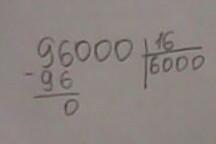 96000 16
- 96 6000
0